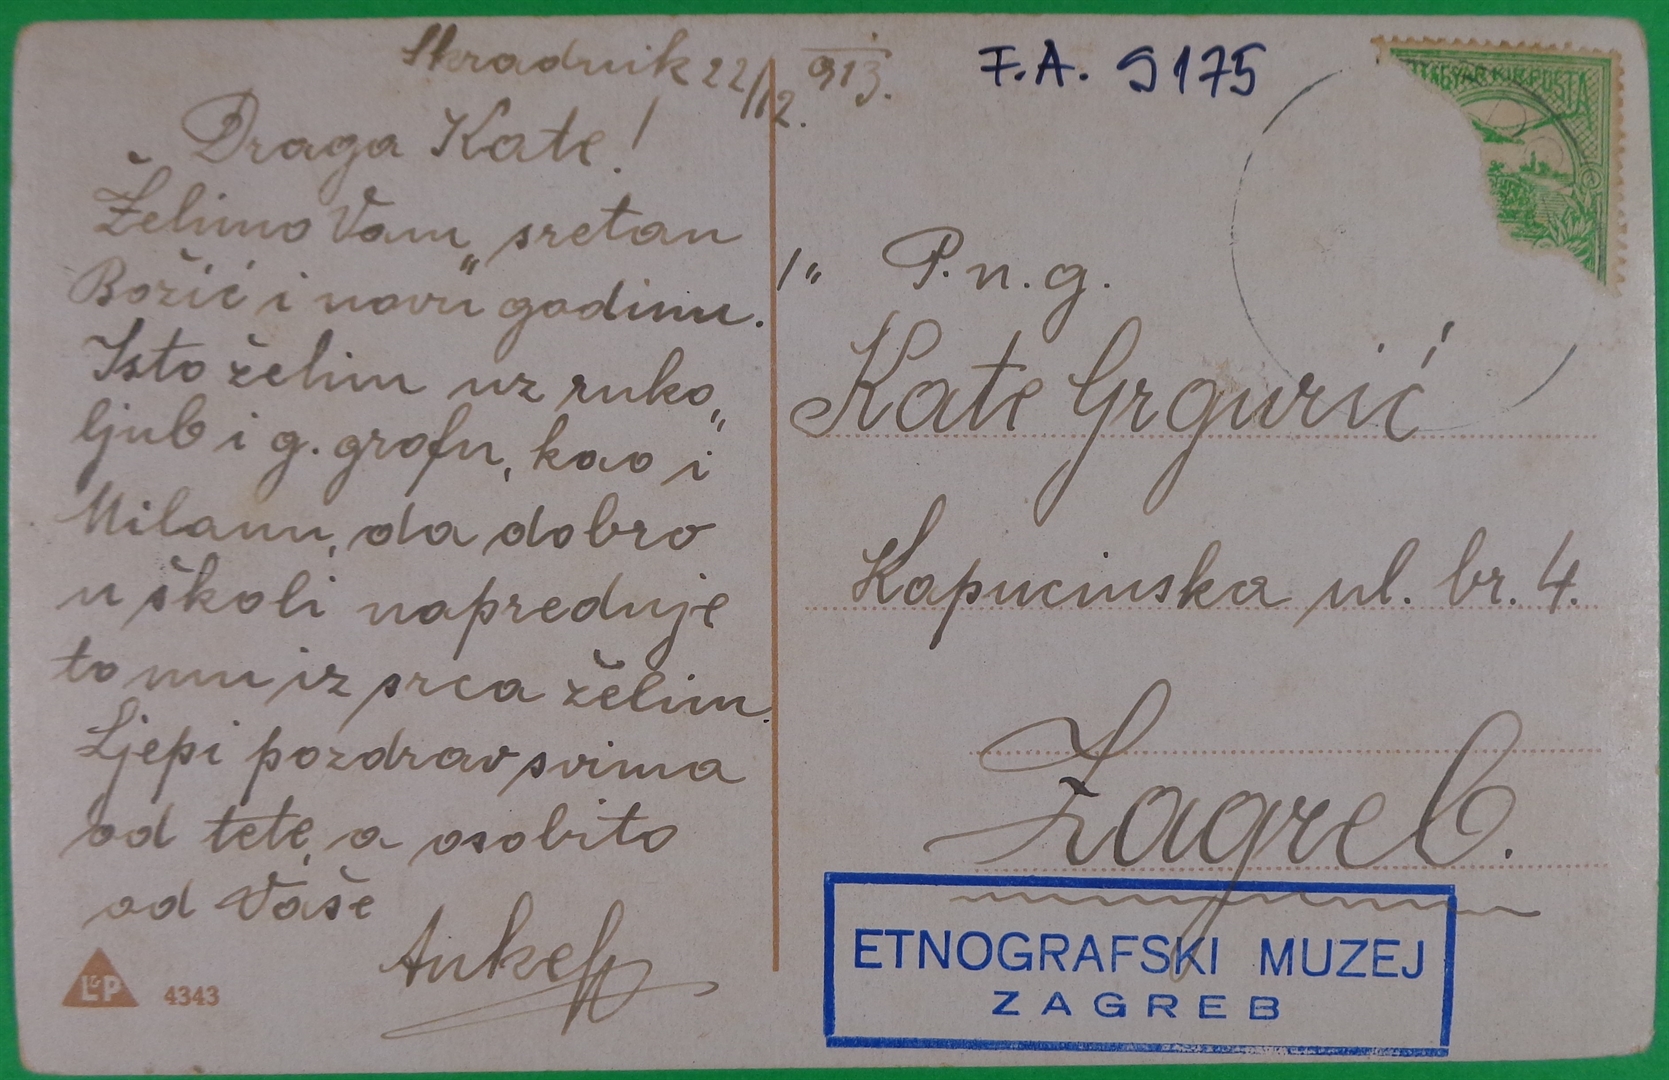 Skradnik 22/12. 913.
Draga Kate!
Želimo Vam „sretan
Božić i novu godinu."
Isto želim uz ruko„
ljub i g. grofu, kao i
Milanu, da dobro
u školi napreduje
to mu iz srca želim.
Ljepi pozdrav svima
od tete, a osobito
od Vaše
Anke
L&P 4343
F.A. 9175
MAGYAR KIR. POSTA
P. n. g.
Kate Grgurić
Kapucinska ul. br. 4.
Zagreb.
ETNOGRAFSKI MUZEJ
ZAGREB